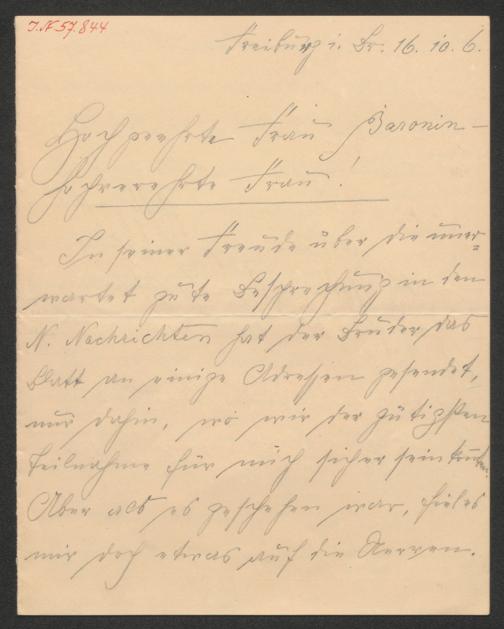 I.N 57.844
Freiburg i. Br. 16. 10. 6.
Hochgeehrte Frau Baronin –
hochverehrte Frau!
In seiner Freude über die uner-
wartet gute Besprechung in den
N. Nachrichten hat der Bruder das
Blatt an einige Adressen gesendet,
nur dahin, wo wir der gütigsten
Teilnahme für mich sicher sein
Aber als es geschehen war, fiel es
mir doch etwas auf die Nerven.